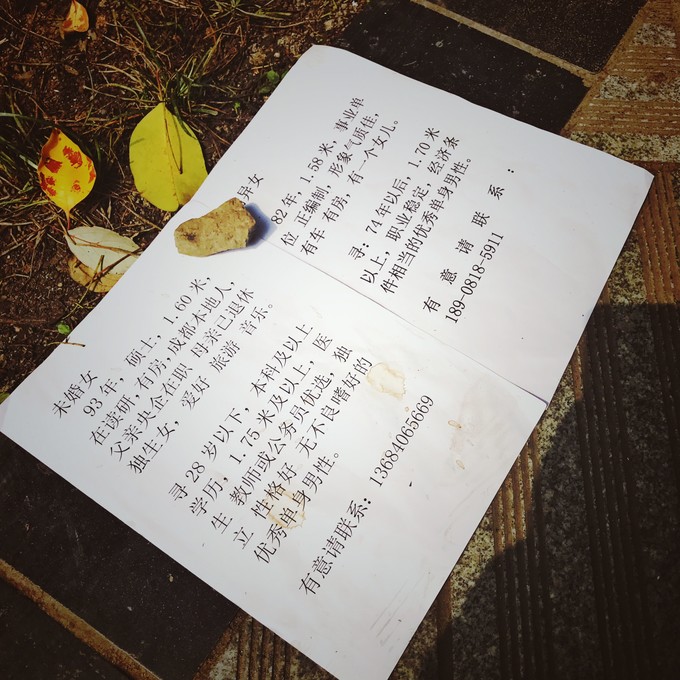 未婚女
93 年，硕士，1.60 米，
在读研，有房，成都本地人，
父亲央企在职 母亲已退休
独生女，爱好 旅游 音乐。
寻 28 岁以下，本科及以上
学历，1.75 米及以上，医
生 教师或公务员优选，独
立 性格好 无不良嗜好的
优秀单身男性。
有意请联系：13684065669
异女
82 年，1.58 米，事业单
位 正编制，形象气质佳，
有车 有房，有一个女儿。
寻：74 年以后，1.70 米
以上，职业稳定，经济条
件相当的优秀单身男性。
有 意 请 联 系 ：
189-0818-5911